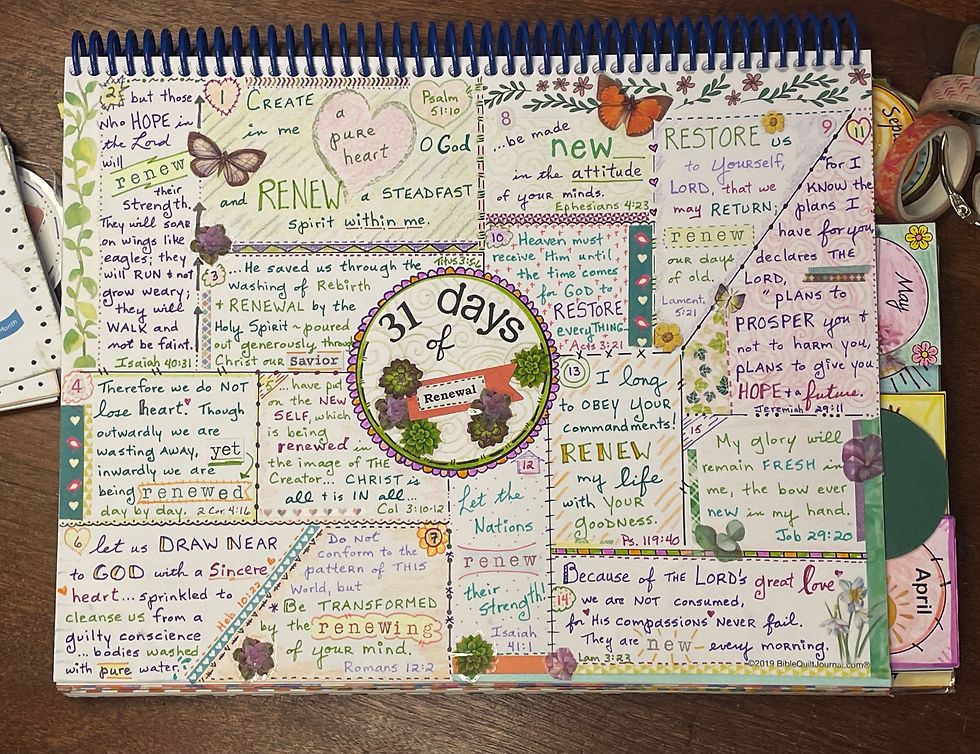 2
but those
who HOPE in
the Lord
will
renew
their
strength.
They will soar
on wings like
eagles; they
will RUN + not
grow weary;
they will
WALK and
not be faint.
Isaiah 40:31
1
CREATE
in me
a
pure
heart
Psalm
51:10
O God
and RENEW a STEADFAST
spirit within me.
Titus 3:5-6
3
...He saved us through the
washing of Rebirth
+ RENEWAL by the
Holy Spirit ~ poured
out generously through
Christ our Savior
4
Therefore we do NOT
lose heart. Though
outwardly we are
wasting AWAY, yet
inwardly we are
being renewed
day by day. 2 Cor. 4:16
5
have put
on the NEW
SELF, which
is being
renewed in
the image of THE
Creator... CHRIST is
all + is IN all...
Col 3:10-12
6
let us DRAW NEAR
to GOD with a Sincere
heart... sprinkled to
cleanse us from a
guilty conscience
... bodies washed
with pure water.
Heb. 10:22
7
Do Not
conform to the
pattern of THIS
World, but
Be TRANSFORMED
by the renewing
of your mind.
Romans 12:2
31 days
of
Renewal
8
...be made
new
in the attitude
of your minds.
Ephesians 4:23
9
RESTORE us
to Yourself,
LORD, that we
may RETURN;
renew
our days
of old.
Lament.
5:21
10
Heaven must
receive Him until
the time comes
for GOD to
RESTORE
everyTHING...
Acts 3:21
11
"For I
KNOW the
plans I
have for you,
declares THE
LORD,
"pLANS to
PROSPER you +
not to harm you,
pLANS to give you
HOPE + a future.
Jeremiah 29:11
12
Let the
Nations
renew
their
strength!
Isaiah
41:1
13
I long
to OBEY YOUR
commandments!
RENEW
my life
with YOUR
goodness.
Ps. 119:40
14
Because of THE LORD'S great love
we are NOT consumed,
for His compassions NEVER fail.
They are new every morning.
Lam 3:23
15
My glory will
remain FRESH in
me, the bow ever
new in my hand.
Job 29:20
©2019 BibleQuiltJournal.com®
May
April
Month